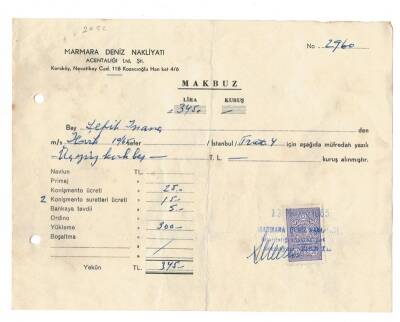 2960
MARMARA DENİZ NAKLİYATI
ACENTALIĞI Ltd. Şti.
Karaköy, Necatibey Cad. 118 Kozacıoğlu Han kat 4/6
No. 2960
MAKBUZ
LİRA KURUŞ
345.-
Bay den
m/s 1965 / İstanbul / için aşağıda müfredatı yazılı
Üçyüz kırk beş T. L. kuruş alınmıştır.
Navlun TL.
Primaj
Konişmento ücreti 25.-
2 Konişmento suretleri ücreti 15.-
Bankaya tevdii 5.-
Ordino
Yükleme 300.-
Boşaltma
Yekûn TL. 345.-
MARMARA DENİZ